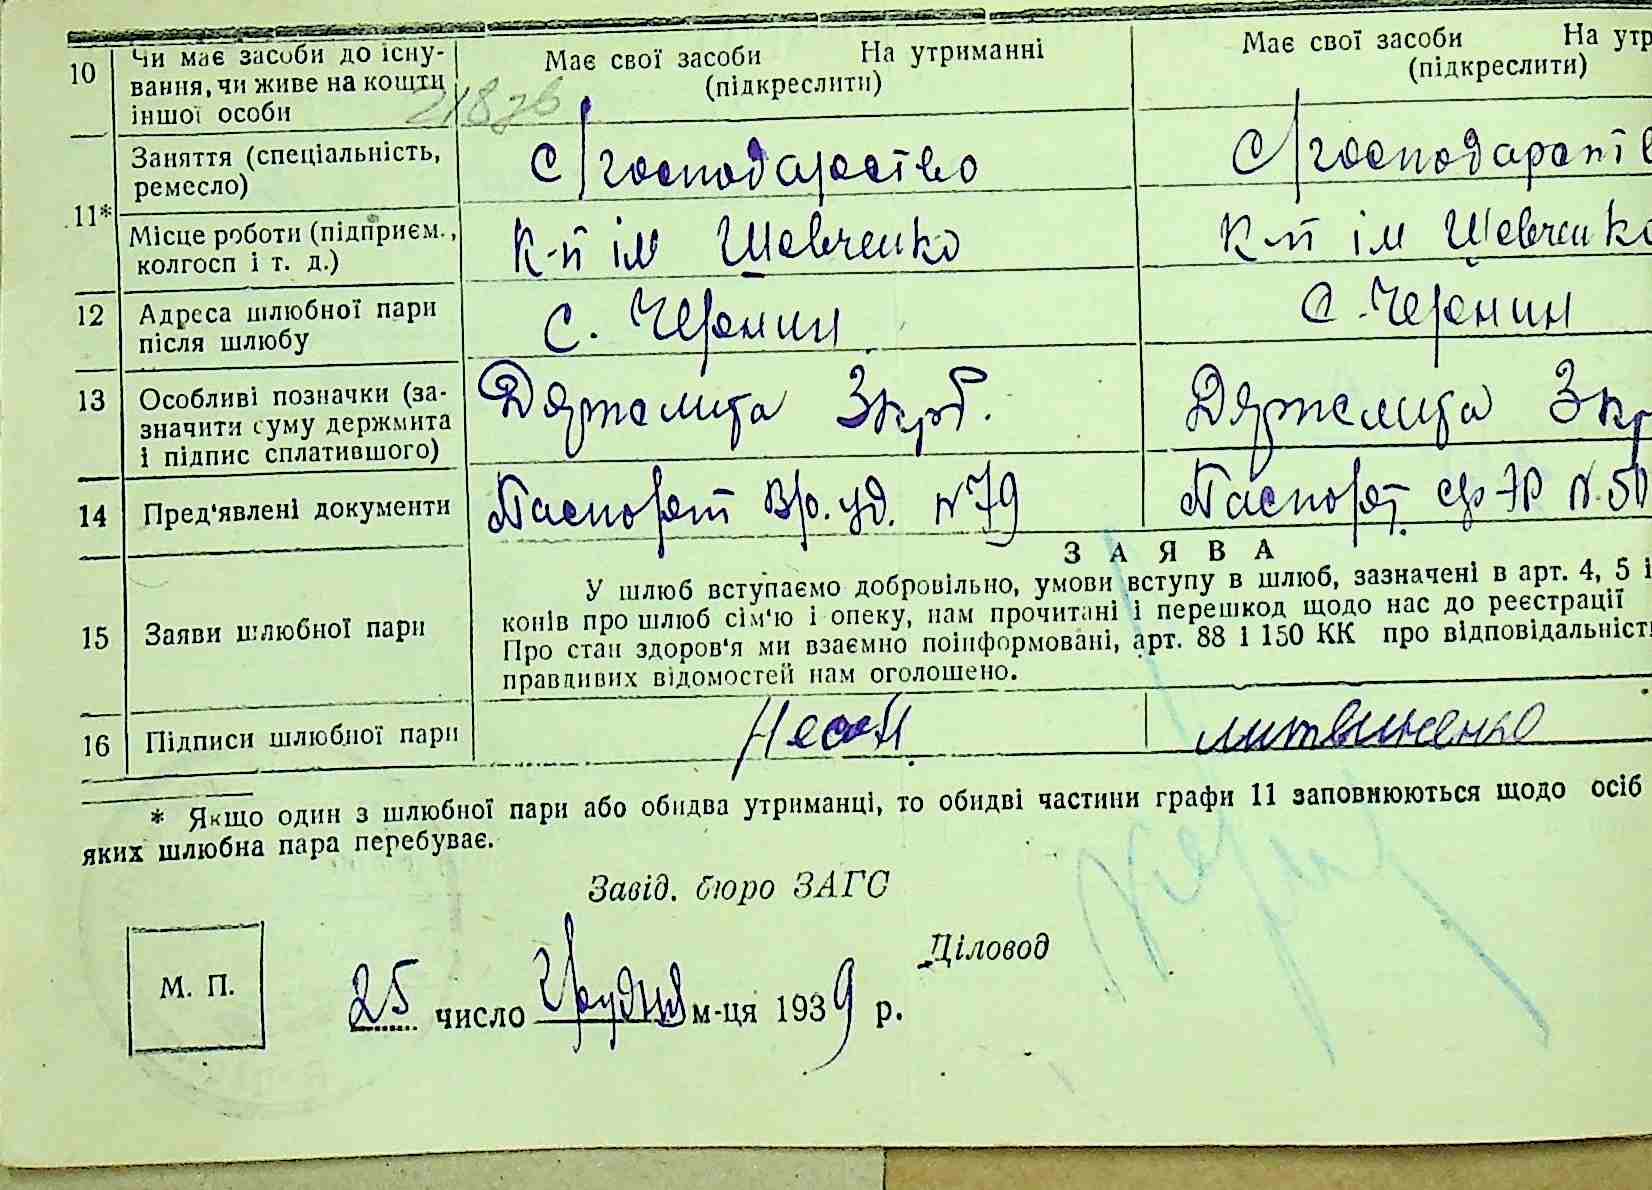 10 Чи має засоби до існу- Має свої засоби На утриманні Має свої засоби На утр
вання, чи живе на кошти (підкреслити) (підкреслити)
іншої особи
Заняття (спеціальність, с/господарство с/господарств
ремесло)
11*
Місце роботи (підприєм., К-п ім Шевченко К-п ім Шевченко
колгосп і т. д.)
12 Адреса шлюбної пари с. Черемин с. Черемин
після шлюбу
13 Особливі позначки (за- Держмита 3 крб. Держмита 3 кр
значити суму держмита
і підпис сплатившого)
14 Пред'явлені документи Паспорт Вр. уд. №79 Паспорт
З А Я В А
15 Заяви шлюбної пари У шлюб вступаємо добровільно, умови вступу в шлюб, зазначені в арт. 4, 5 і
конів про шлюб сім'ю і опеку, нам прочитані і перешкод щодо нас до реєстрації
Про стан здоров'я ми взаємно поінформовані, арт. 88 і 150 КК про відповідальність
правдивих відомостей нам оголошено.
16 Підписи шлюбної пари литвиненко
* Якщо один з шлюбної пари або обидва утриманці, то обидві частини графи 11 заповнюються щодо осіб
яких шлюбна пара перебуває.
Завід. бюро ЗАГС
Діловод
М. П.
25 число Грудня м-ця 1939 р.